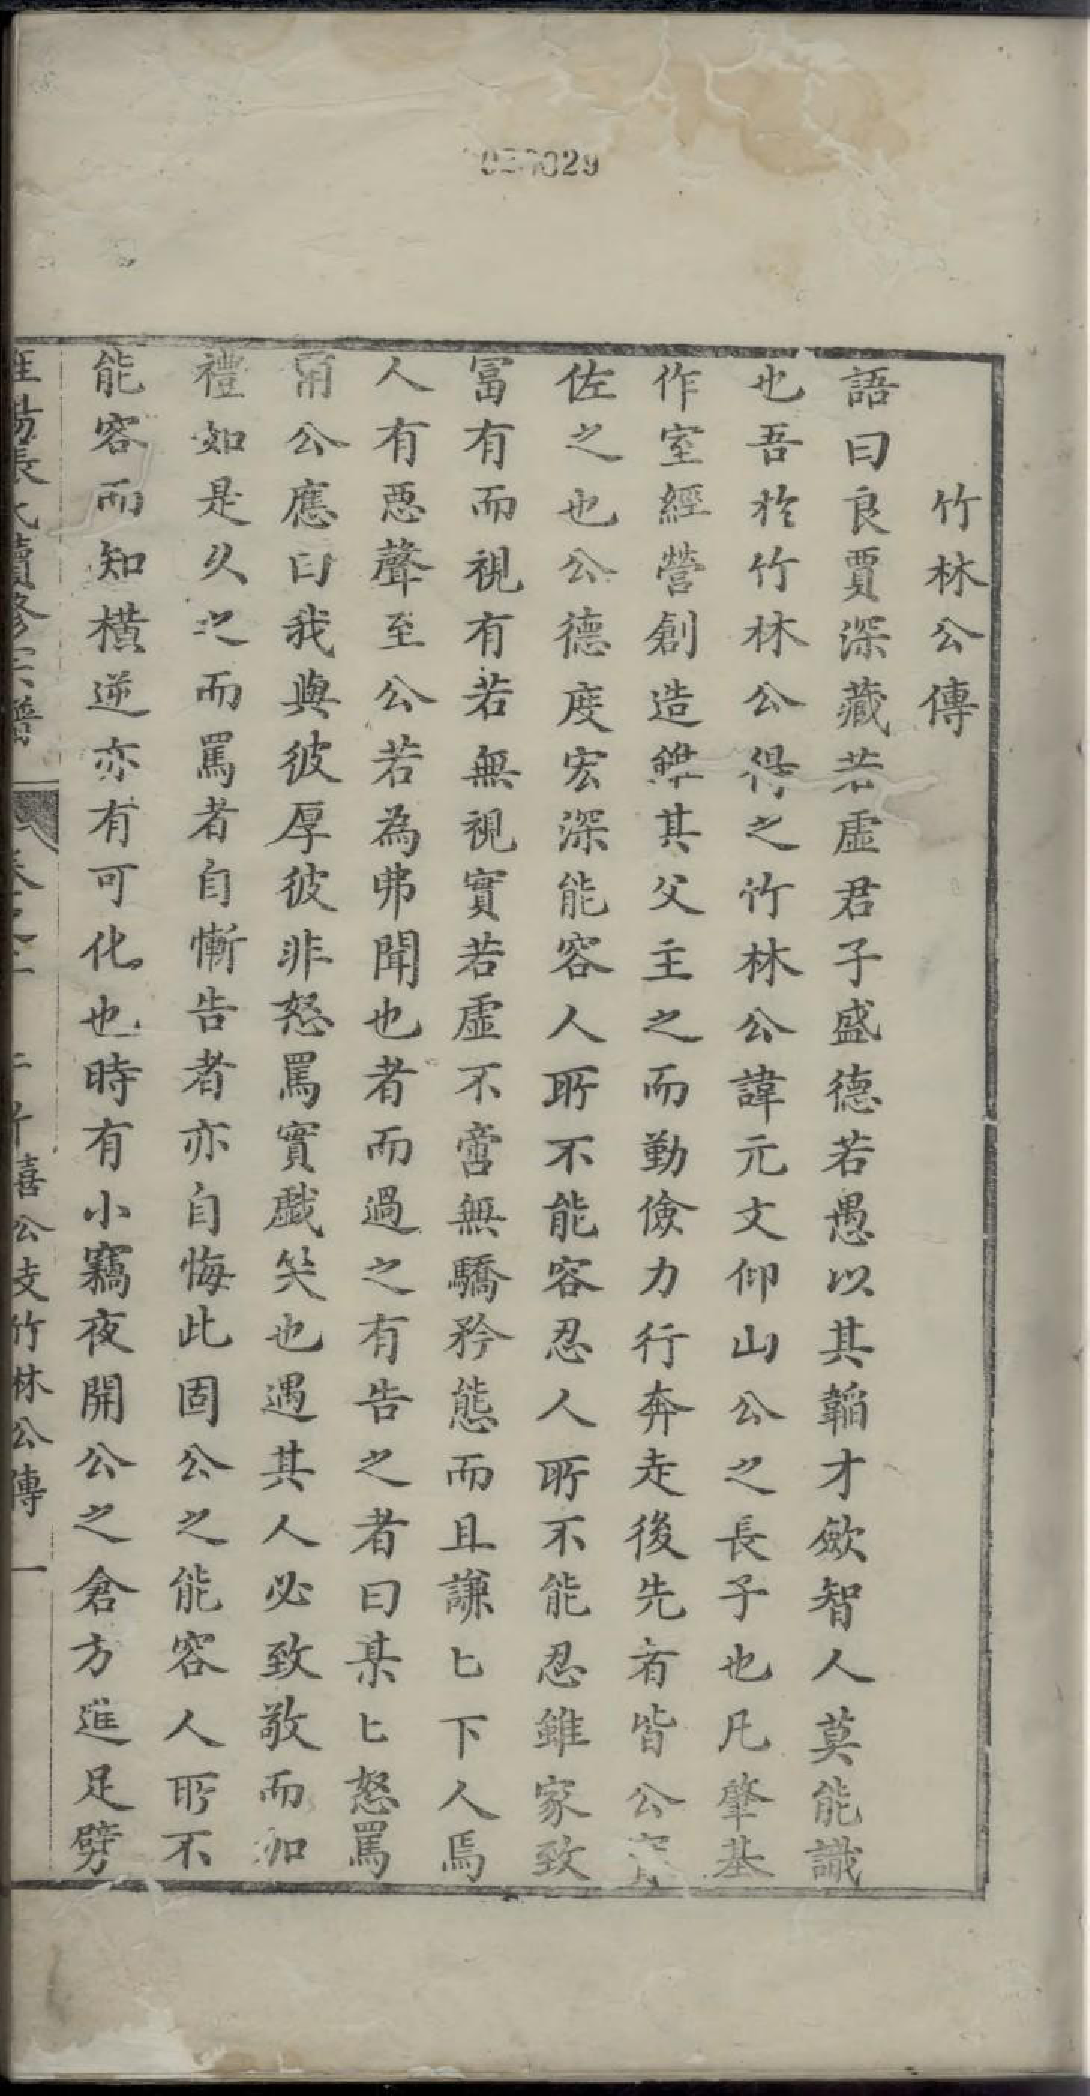 竹林公傳
語曰良賈深藏若虛君子盛德若愚以其韜才斂智人莫能識
也吾於竹林公得之竹林公諱元文仰山公之長子也凡肇基
作室經營創造雖其父主之而勤儉力行奔走後先者皆公實
佐之也公德度宏深能容人所不能容忍人所不能忍雖家致
富有而視有若無視實若虛不啻無驕矜態而且謙匕下人焉
人有惡聲至公若為弗聞也者而過之有告之者曰某匕怒罵
甭公應曰我與彼厚彼非怒罵實戲笑也遇其人必致敬而加
禮如是久之而罵者自慚告者亦自悔此固公之能容人所不
能容而知橫逆亦有可化也時有小竊夜開公之倉方進足劈
張氏續修宗譜
卷之 喜公支竹林公傳 一